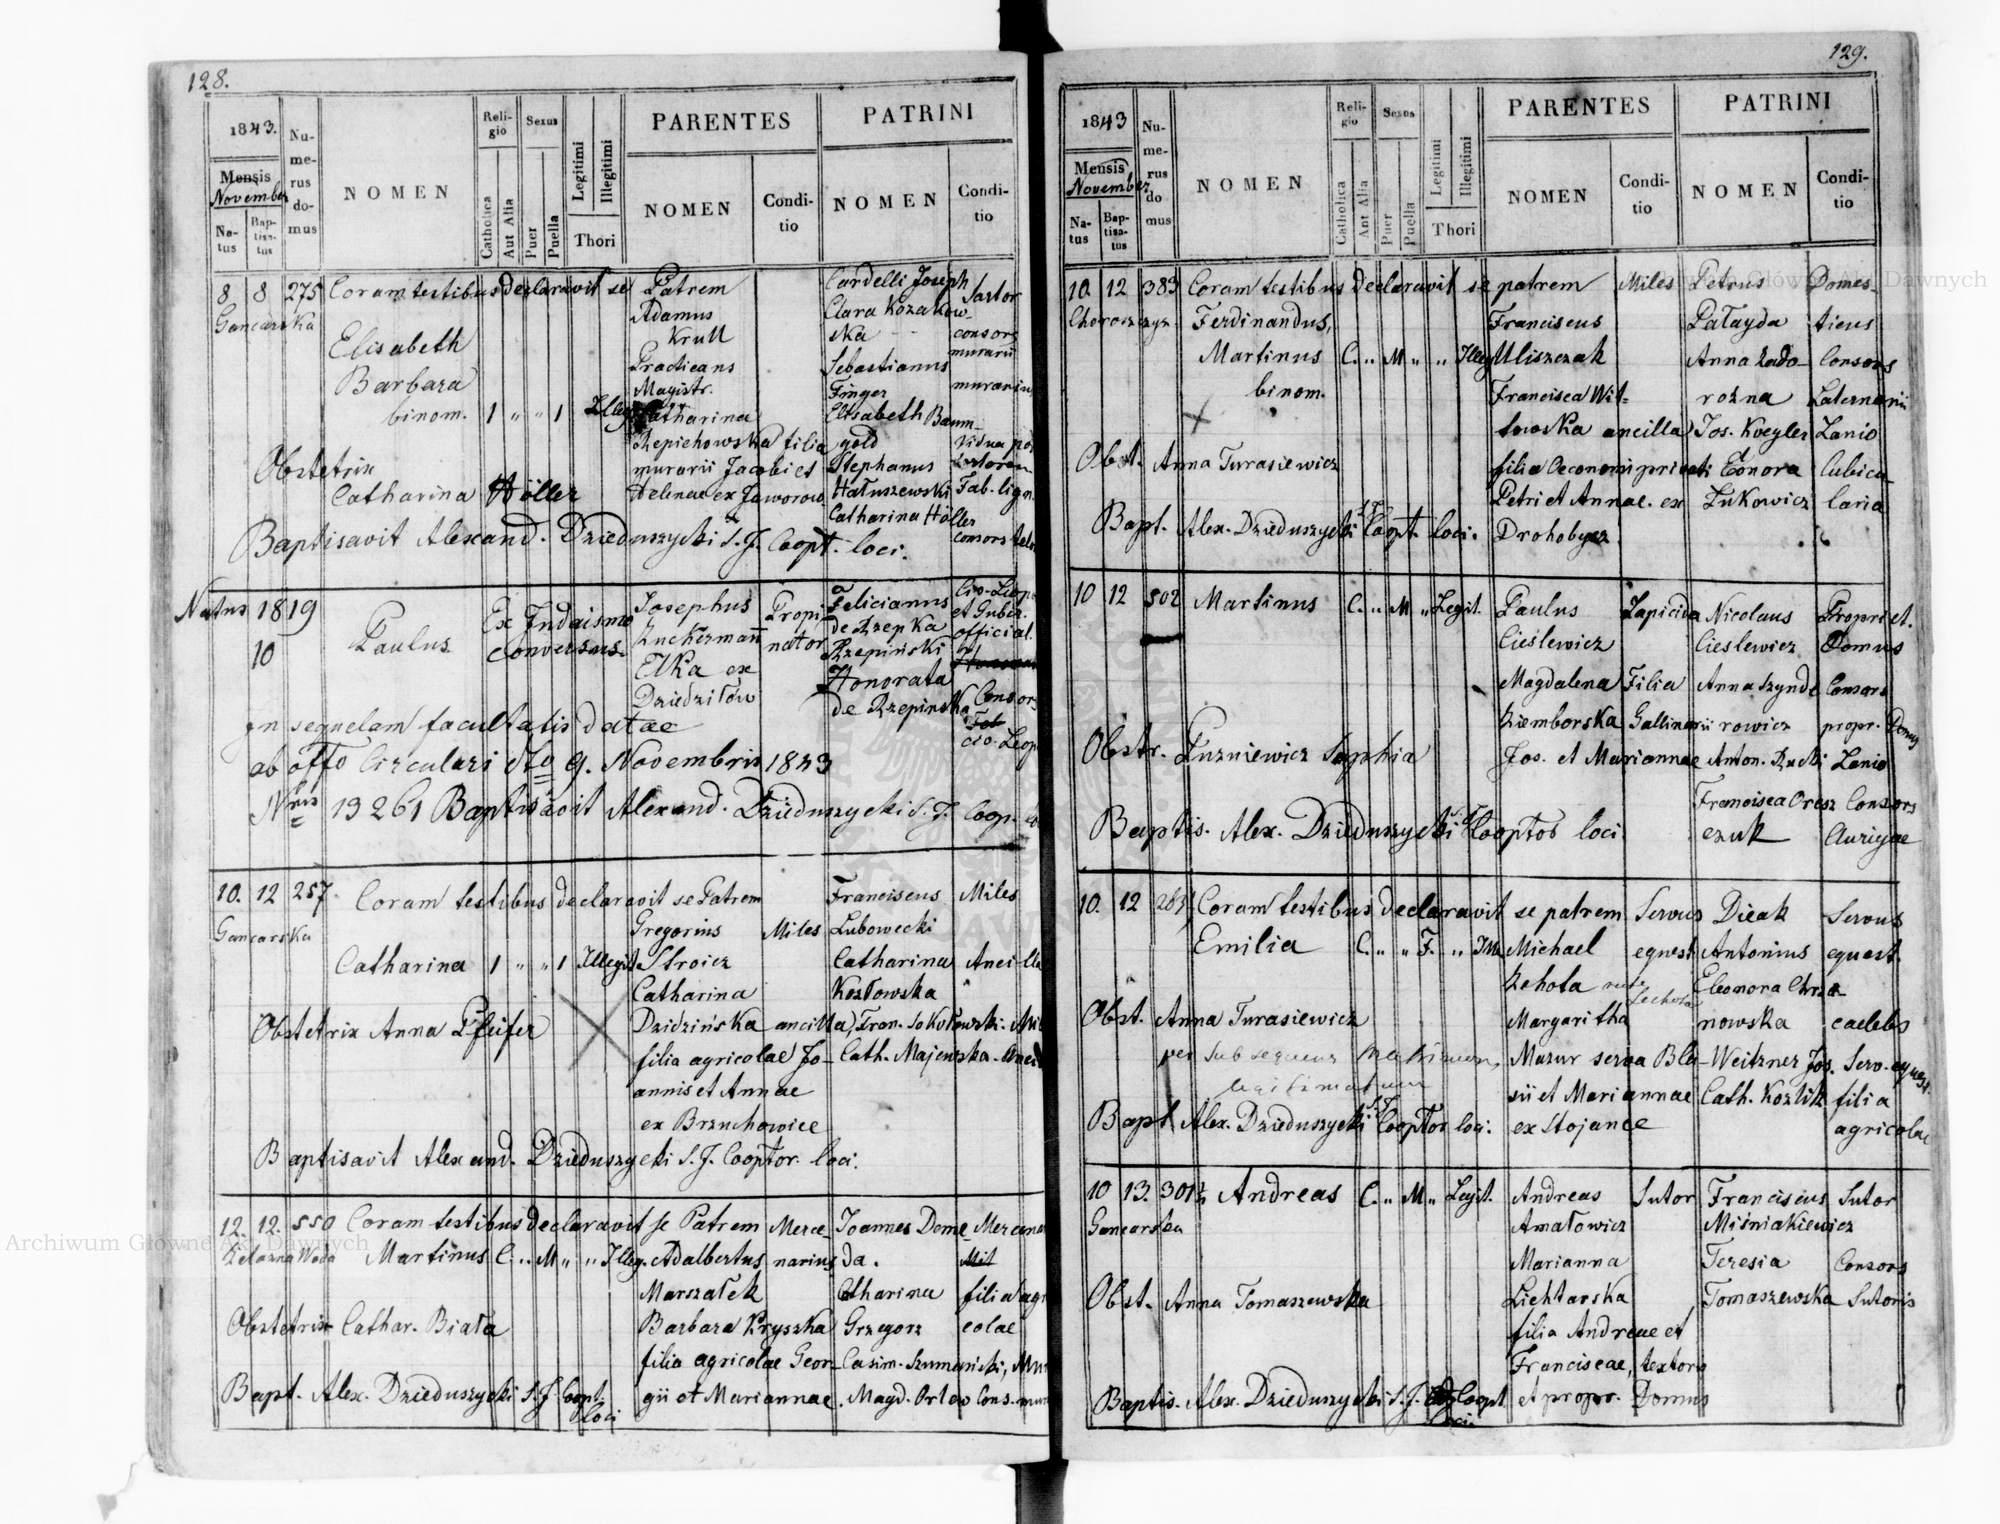 128.
1843.
Numerus domus
NOMEN
Religio
Sexus
Legitimi
Illegitimi
PARENTES
PATRINI
Mensis
November
Catholica
Aut Alia
Puer
Puella
NOMEN
Conditio
NOMEN
Conditio
Natus
Baptisatus
Thori
8 8 275 Coram testibus declaravit se Patrem Cardelli Joseph Sartor
Gancarska Adamus Clara Kozakow-
Krull ska consors
Elisabeth Practicans Sebastianus murarii
Barbara Magistr. Finger murarius
binom. 1 „ „ 1 Illeg. Catharina Elisabeth Baum-
Rzepichowska filia gold Vidua
Obstetrix murarii Jacobi et Stephanus
Catharina Höller Helenae ex Jaworow Hałuszewski Fab. lign.
Catharina Höller
Baptisavit Alexand. Dzieduszycki S.J. Coopt. loci. consors
Natus 1819 Paulus Ex Judaismo Josephus Propi- Felicianus Civ. Leop.
10 conversus. Zuckermann nator de Rzepka et Guber.
Elka ex Rzepiński official.
Dziedziłow Honorata
de Rzepinska Consors
In sequelam facultatis datae
civ. Leop.
ab offo Circulari dto 9. Novembris 1843
Nris 13261 Baptisavit Alexand. Dzieduszycki S.J. Coop.
10. 12 257. Coram testibus declaravit se Patrem Franciscus Miles
Gancarska Gregorius Miles Lubowecki
Catharina 1 „ „ 1 Illegit. Stroicz Catharina Ancilla
Catharina Kozłowska
Obstetrix Anna Pfeifer Dzidzińska ancilla Fran. Sokołowski. Mil
filia agricolae Jo- Cath. Majewska. Ancil
annis et Annae
ex Brzuchowice
Baptisavit Alexand. Dzieduszycki S.J. Cooptor. loci.
12. 12. 550 Coram testibus declaravit se Patrem Merce- Joannes Dome- Mercena
Zelazna Woda Martinus C. „ M „ „ Illeg. Adalbertus narius da.
Marszałek Catharina filia agri
Obstetrix Cathar. Biała Barbara Kryszka Grzegorz colae
filia agricolae Geor- Casim. Szumanski, Mu
Bapt. Alex. Dzieduszycki S.J. Coopt. gii et Mariannae. Magd. Orlow Cons. mur
loci
129.
1843
Numerus domus
NOMEN
Religio
Sexus
Legitimi
Illegitimi
PARENTES
PATRINI
Mensis
November
Catholica
Aut Alia
Puer
Puella
NOMEN
Conditio
NOMEN
Conditio
Natus
Baptisatus
Thori
10. 12 383 Coram testibus declaravit se patrem Miles Petrus Domes-
Chorosczyz. Ferdinandus, Franciscus Pałayda ticus
Martinus C. „ M „ „ Illeg. Uliszczak Anna Zado- Consors
binom. Francisca Wit- rożna Laternarii
towska ancilla Jos. Koegler Lanio
Obst. Anna Turasiewicz filia Oeconomi privati Eonora Cubicu-
Petri et Annae. ex Łukowicz laria
Bapt. Alex. Dzieduszycki S.J. Coopt. loci. Drohobycz.
10 12 502 Martinus C. „ M „ Legit. Paulus Lapicida Nicolaus Propriet.
Cieślewicz Cieslewicz Domus
Magdalena Filia Anna Szynde- Consors
Ziemborska Gallinarii rowicz propr. Domus
Obstr. Puzniewicz Sophia Jos. et Mariannae Anton. Rucki Lanio
Francisca Oresz- Consors
Baptis. Alex. Dzieduszycki S.J. Cooptor loci czuk Aurigae
10. 12 Coram testibus declaravit se patrem Servus Dieak Servus
Emilia C. „ „ F. „ Ille Michael equest Antonius equest.
Zehota Eleonora Chrza-
Obst. Anna Turasiewicz Margaritha nowska caelebs
per subsequens matrimon. Mazur serva Bla- Weitzner Jos. Serv. equest.
legitimatum sii et Mariannae Cath. Kozlik filia
Bapt. Alex. Dzieduszycki S.J. Cooptor loci. ex Stojance agricolae
10 13. 301½ Andreas C. „ M „ Legit. Andreas Sutor Franciscus Sutor
Gancarska Amałowicz Miśniakiewicz
Marianna Teresia Consors
Obst. Anna Tomaszewska Lichtarska Tomaszewska Sutoris
filia Andreae et
Franciscae, textoris
Baptis. Alex. Dzieduszycki S.J. Coopt. et propr. Domus
loci.
Archiwum Główne Akt Dawnych
Archiwum Główne Akt Dawnych